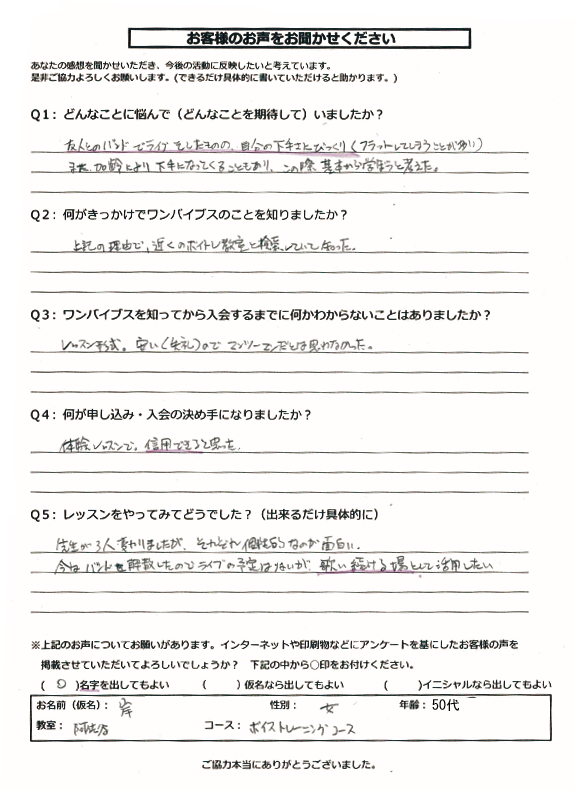 お客様のお声をお聞かせください
あなたの感想を聞かせいただき、今後の活動に反映したいと考えています。
是非ご協力よろしくお願いします。(できるだけ具体的に書いていただけると助かります。)
Q1：どんなことに悩んで（どんなことを期待して）いましたか？
友人とのバンドでライブをしたものの、自分の下手さにびっくり(フラットしてしまうことが多い)
また、加齢により下手になってくることもあり、この際、基本から学ぼうと考えた。
Q2：何がきっかけでワンバイブスのことを知りましたか？
上記の理由で、近くのボイトレ教室と検索していて知った。
Q3：ワンバイブスを知ってから入会するまでに何かわからないことはありましたか？
レッスン形式。安い(失礼)ので マンツーマンだとは思わなかった。
Q4：何が申し込み・入会の決め手になりましたか？
体験レッスンで、信用できると思った。
Q5：レッスンをやってみてどうでした？（出来るだけ具体的に）
先生が3人変わりましたが、それぞれ個性的なのが面白い。
今はバンドを解散したのでライブの予定はないが、歌い続ける場として活用したい
※上記のお声についてお願いがあります。インターネットや印刷物などにアンケートを基にしたお客様の声を
掲載させていただいてよろしいでしょうか？ 下記の中から○印をお付けください。
(○)名字を出してもよい ( )仮名なら出してもよい ( )イニシャルなら出してもよい
お名前（仮名）：岸 性別：女 年齢：50代
教室：阿佐谷 コース：ボイストレーニングコース
ご協力本当にありがとうございました。